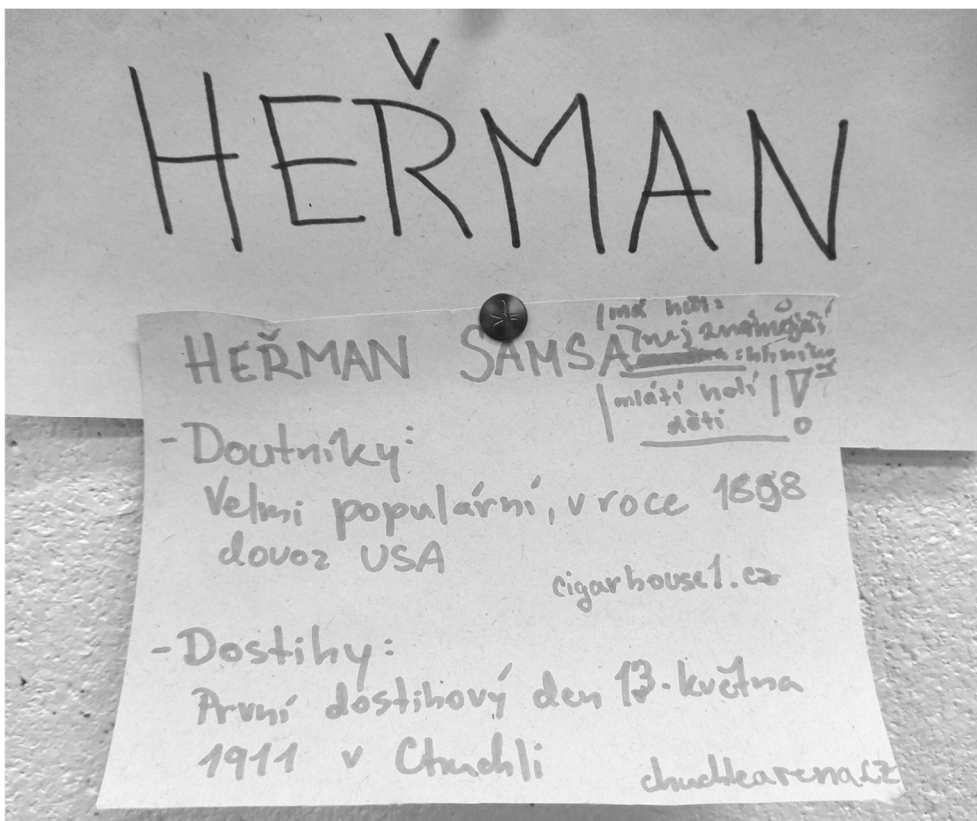 HEŘMAN
HEŘMAN SAMSA
má hůl:
nejznámější
mlátí holí
děti !
- Doutníky:
Velmi populární, v roce 1898
dovoz USA
cigarhouse1.cz
- Dostihy:
První dostihový den 13. května
1911 v Chuchli
chuchlearena.cz